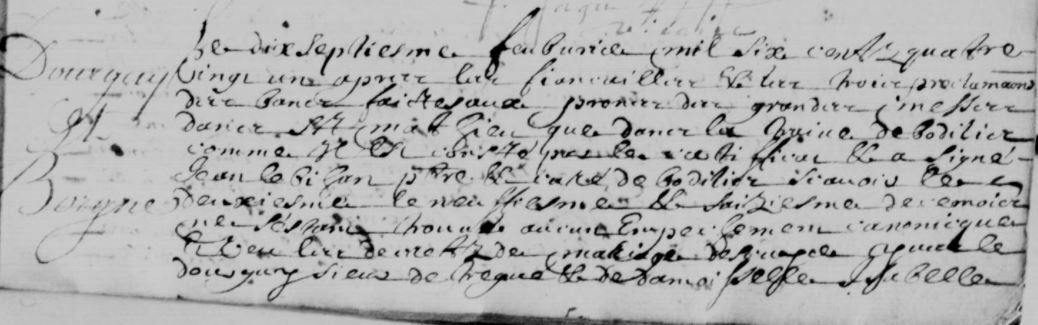 Dourguy
et
Borgne
Le dixseptiesme feburier mil six cents quatre
vingt un apres les fiancailles & les trois proclamaons
des bancs faictes aux prosnes des grandes messes
dances St mathieu que dances la trive de bodilier
comme Il est conste par le certifficat & a signé
Jean lebihan ptre & curé de bodilier scavoir le
deuxiesme le neuffiesme & saiziesme de
ne sestant trouvé aucun Empeschement canonicque
& veu les decretz de mariage le
dourguy sieur de & de damoisselle Isabelle